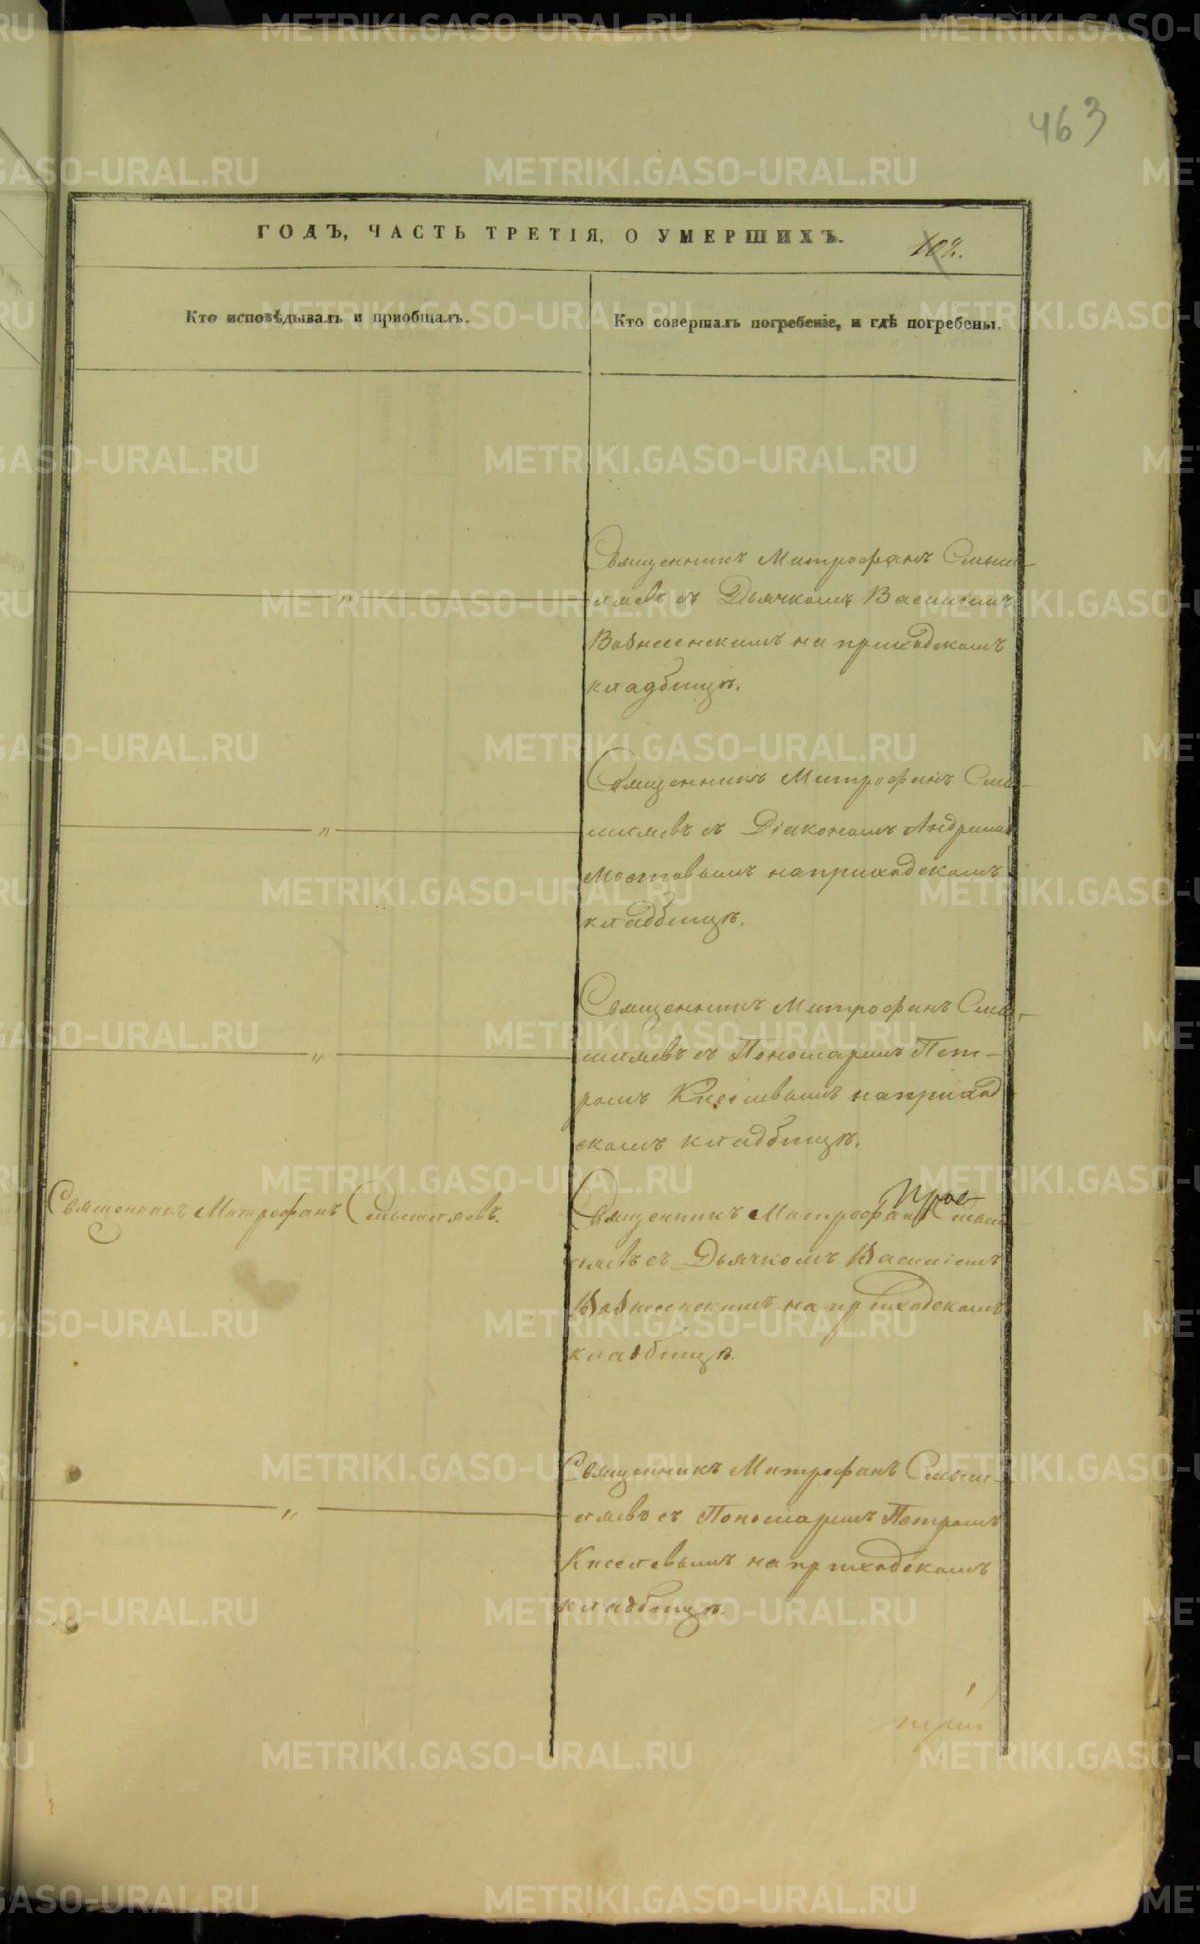 463
ГОДЪ, ЧАСТЬ ТРЕТІЯ, О УМЕРШИХЪ.
102.
Кто исповѣдывалъ и приобщалъ.
Кто совершалъ погребеніе, и гдѣ погребены.
Священникъ Митрофанъ Смыш-
ляевъ съ Дьячкомъ Василіемъ
Вознесенскимъ на приходскомъ
кладбищѣ.
Священникъ Митрофанъ Смы-
шляевъ съ Діакономъ Андреемъ
Мостовымъ на приходскомъ
кладбищѣ.
Священникъ Митрофанъ Смы-
шляевъ съ Пономаремъ Пет-
ромъ Киселевымъ на приход
скомъ кладбищѣ.
Священникъ Митрофанъ Смышляевъ.
Священникъ Митрофанъ Смыш
ляевъ съ Дьячкомъ Василіемъ
Вознесенскимъ на приходскомъ
кладбищѣ.
Священникъ Митрофанъ Смыш
ляевъ съ Пономаремъ Петромъ
Киселевымъ на приходскомъ
кладбищѣ.
METRIKI.GASO-URAL.RU